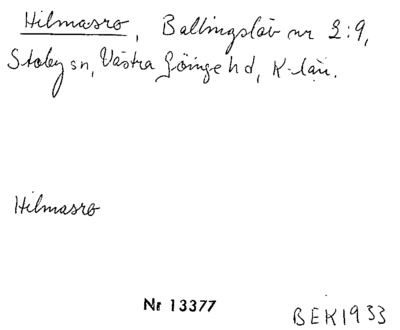 Hilmasro, Ballingslöv nr 2:9,
Stoby sn, Västra Göinge hd, K-län.
Hilmasro
Nr 13377
BEK1933